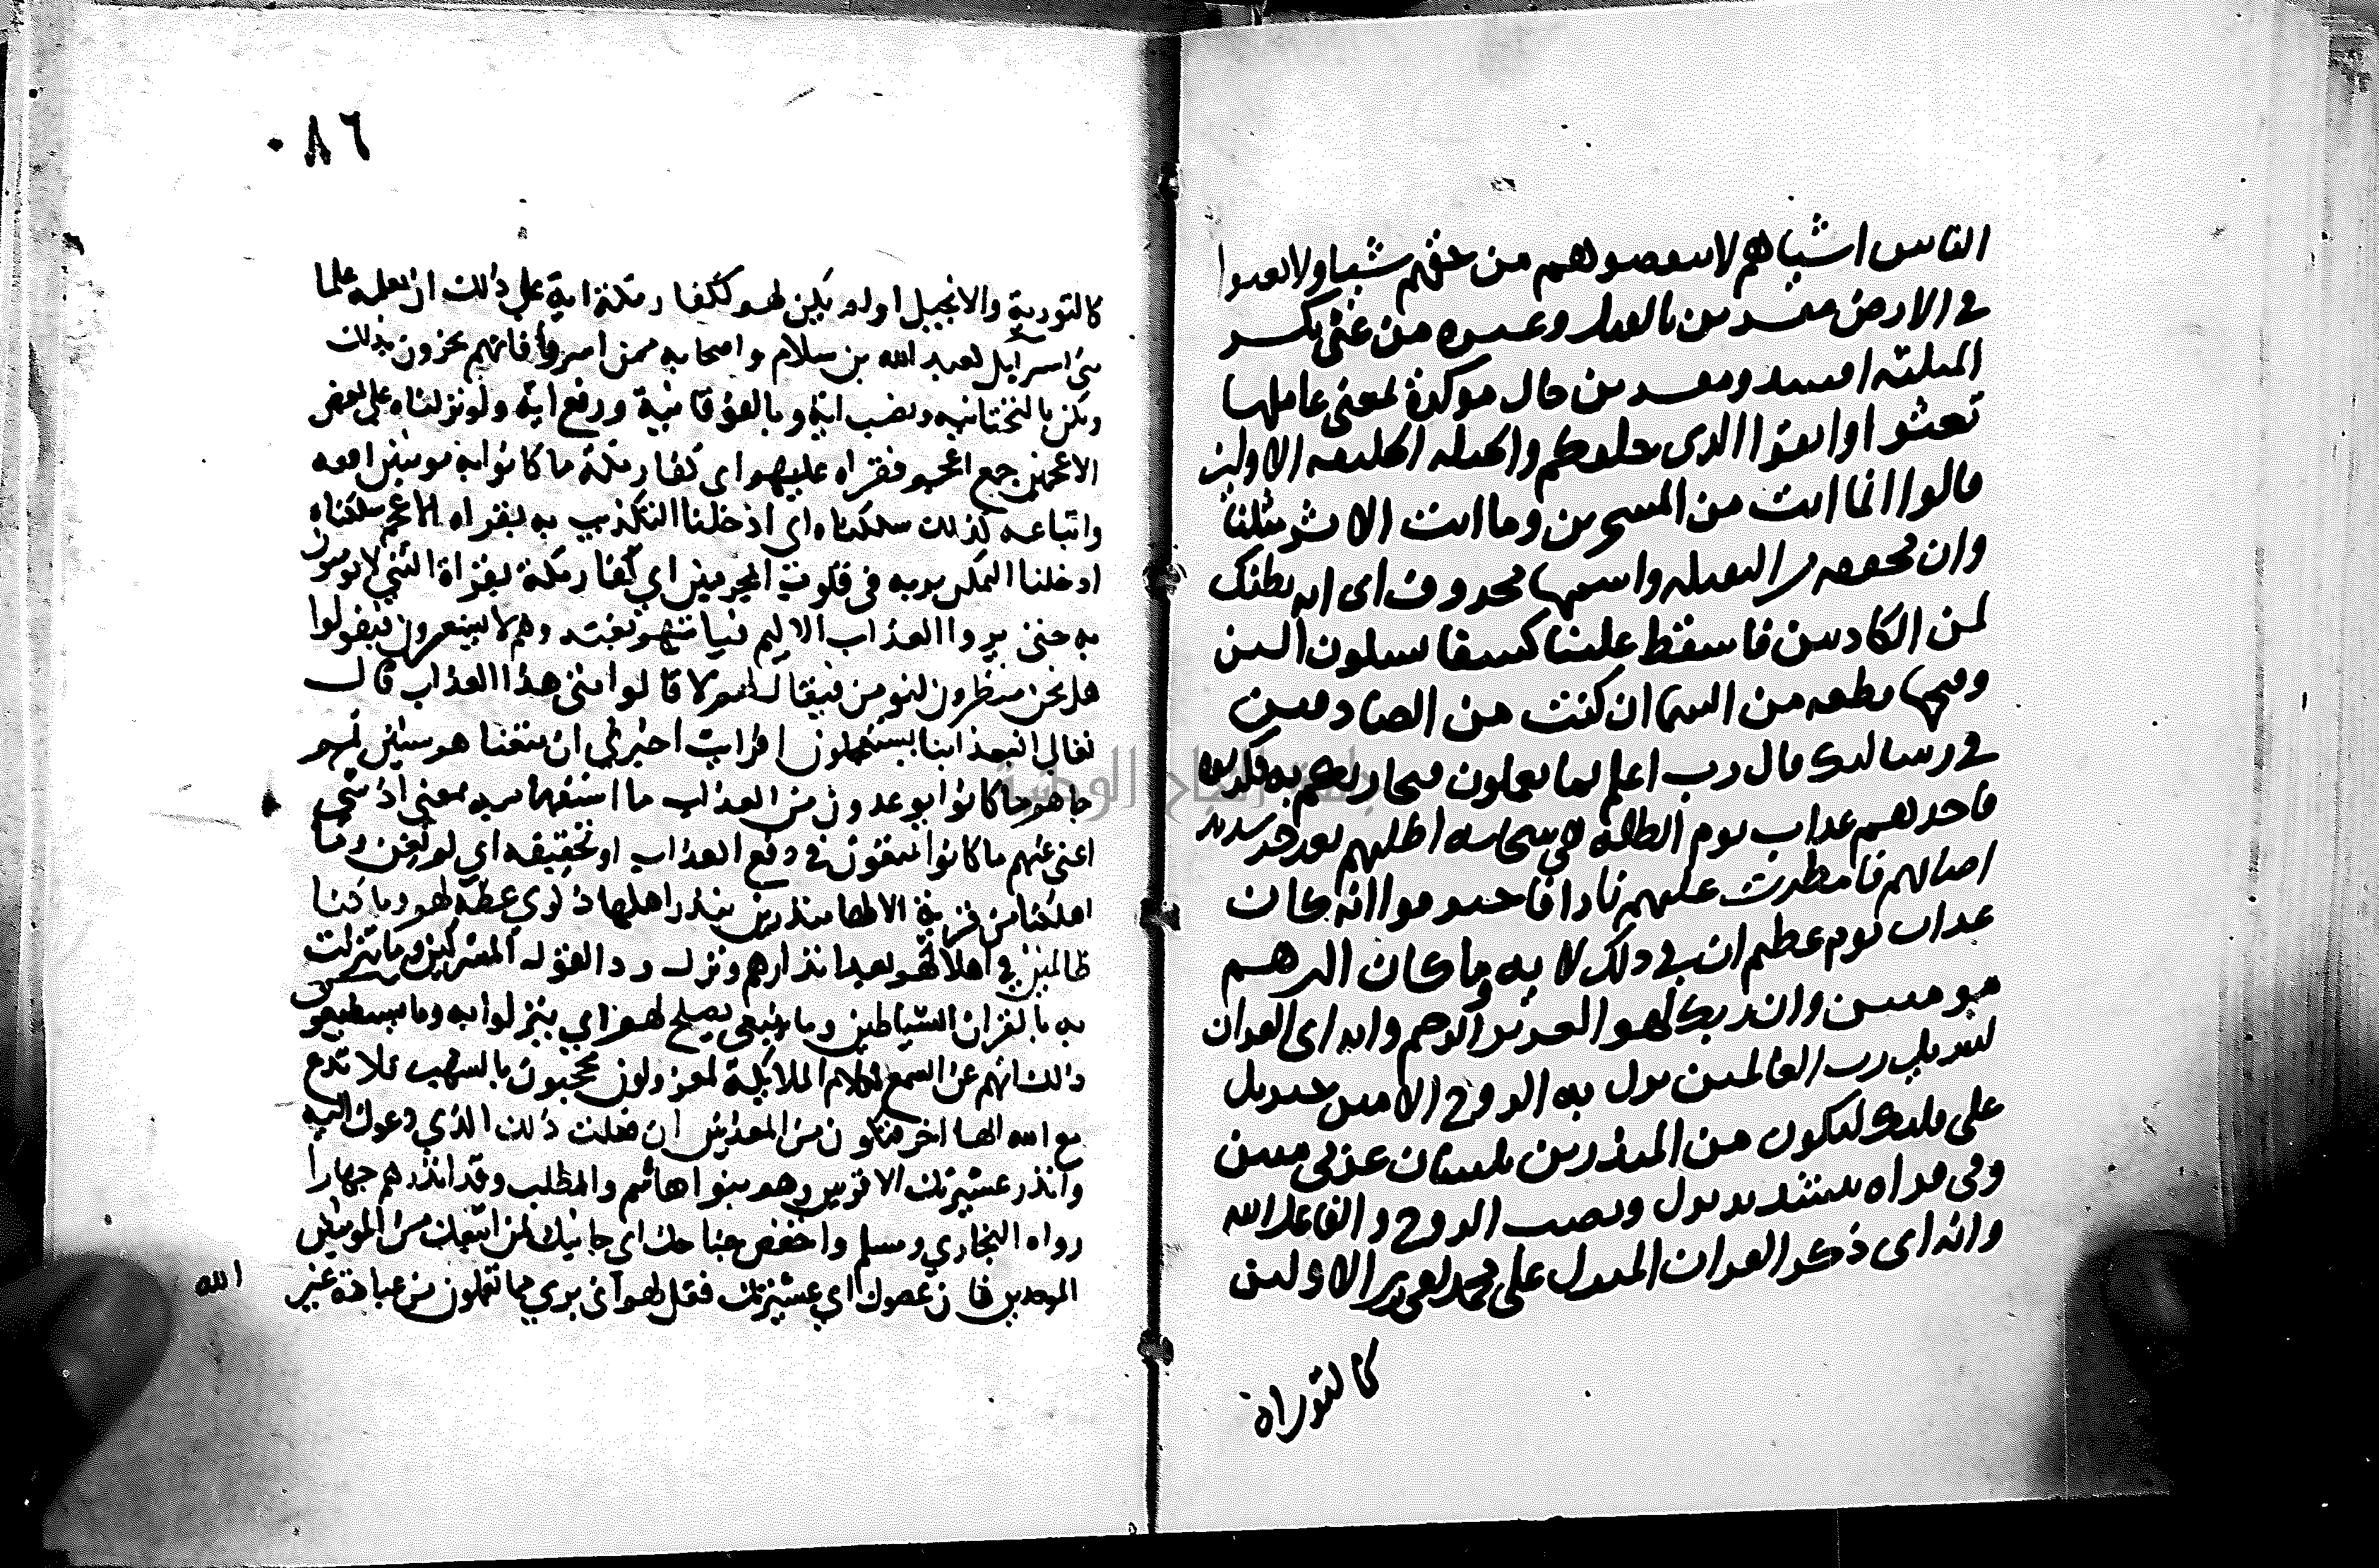 الناس اشياهم لا تنقصوهم من حقهم شيا ولا تعثوا
في الارض مفسدين بالقتل وغيره من عثى بكسر
المثلثة افسد ومفسدين حال موكدة لمعنى عاملها
تعثوا واتقوا الذى خلقكم والجبلة الخليقة الاولين
قالوا انما انت من المسحرين وما انت الا بشر مثلنا
وان مخففة من الثقيلة واسمها محذوف اى انه نظنك
لمن الكاذبين فاسقط علينا كسفا بسكون السين
وفتحها قطعة من السما ان كنت من الصادقين
في رسالتك قال رب اعلم بما تعملون فيجازيكم به فكذبوه
فاخذهم عذاب يوم الظلة هي سحابة اظلتهم بعد حر شديد
اصابهم فامطرت عليهم نارا فاحترقوا انه كان
عذاب يوم عظيم ان في ذلك لاية وما كان اكثرهم
مومنين وان ربك لهو العزيز الرحيم وانه اى القران
لتنزيل رب العالمين نزل به الروح الامين جبريل
على قلبك لتكون من المنذرين بلسان عربي مبين
وفى قراة بتشديد نزل ونصب الروح والفاعل الله
وانه اى ذكر القران المنزل على محمد لفى زبر الاولين
كالتوراة
٠٨٦
كالتورية والانجيل اولم يكن لهم لكفار مكة اية على ذلك ان يعلمه علما
بنى اسرايل لعبد الله بن سلام واصحابه ممن امنوا فانهم يخبرون بذلك
ويكن بالتحتانيه ونصب اية وبالفوقانية ورفع اية ولو نزلناه على بعض
الاعجمين جمع اعجم فقراه عليهم اى كفار مكة ما كانوا به مومنين انفة
واتباعه كذلك سلكناه اي ادخلنا التكذيب به بقراه الاعجم سلكناه
ادخلنا التكذيب به في قلوب المجرمين اي كفار مكة بقراة النبي لا يومنون
به حتى يروا العذاب الاليم فياتيهم بغتة وهم لا يشعرون فيقولوا
هل نحن منظرون لنومن فيقال لهم لا قالوا متى هذا العذاب قال
تعالى افبعذابنا يستعجلون افرايت اخبرني ان متعناهم سنين ثم
جاهم ما كانوا يوعدون من العذاب ما استفهامية بمعنى اي شي
اغنى عنهم ما كانوا يمتعون في دفع العذاب او تخفيفه اي لم يغن وما
اهلكنا من قرية الا لها منذرون تنذر اهلها ذكرى عظة لهم وما كنا
ظالمين في اهلاكهم بعد انذارهم ونزل ردا لقول المشركين وما تنزلت
به بالقران الشياطين وما ينبغي يصلح لهم اي ينزلوا به وما يستطيعون
ذلك انهم عن السمع لكلام الملايكة لمعزولون محجوبون بالشهب فلا تدع
مع الله الها اخر فتكون من المعذبين ان فعلت ذلك الذي دعوك اليه
وانذر عشيرتك الاقربين وهم بنوا هاشم والمطلب وقد انذرهم جهارا
رواه البخاري ومسلم واخفض جناحك اى جانبك لمن اتبعك من المومنين
الموحدين فان عصوك اي عشيرتك فقل لهم اني بري مما تعملون من عبادة غير
الله